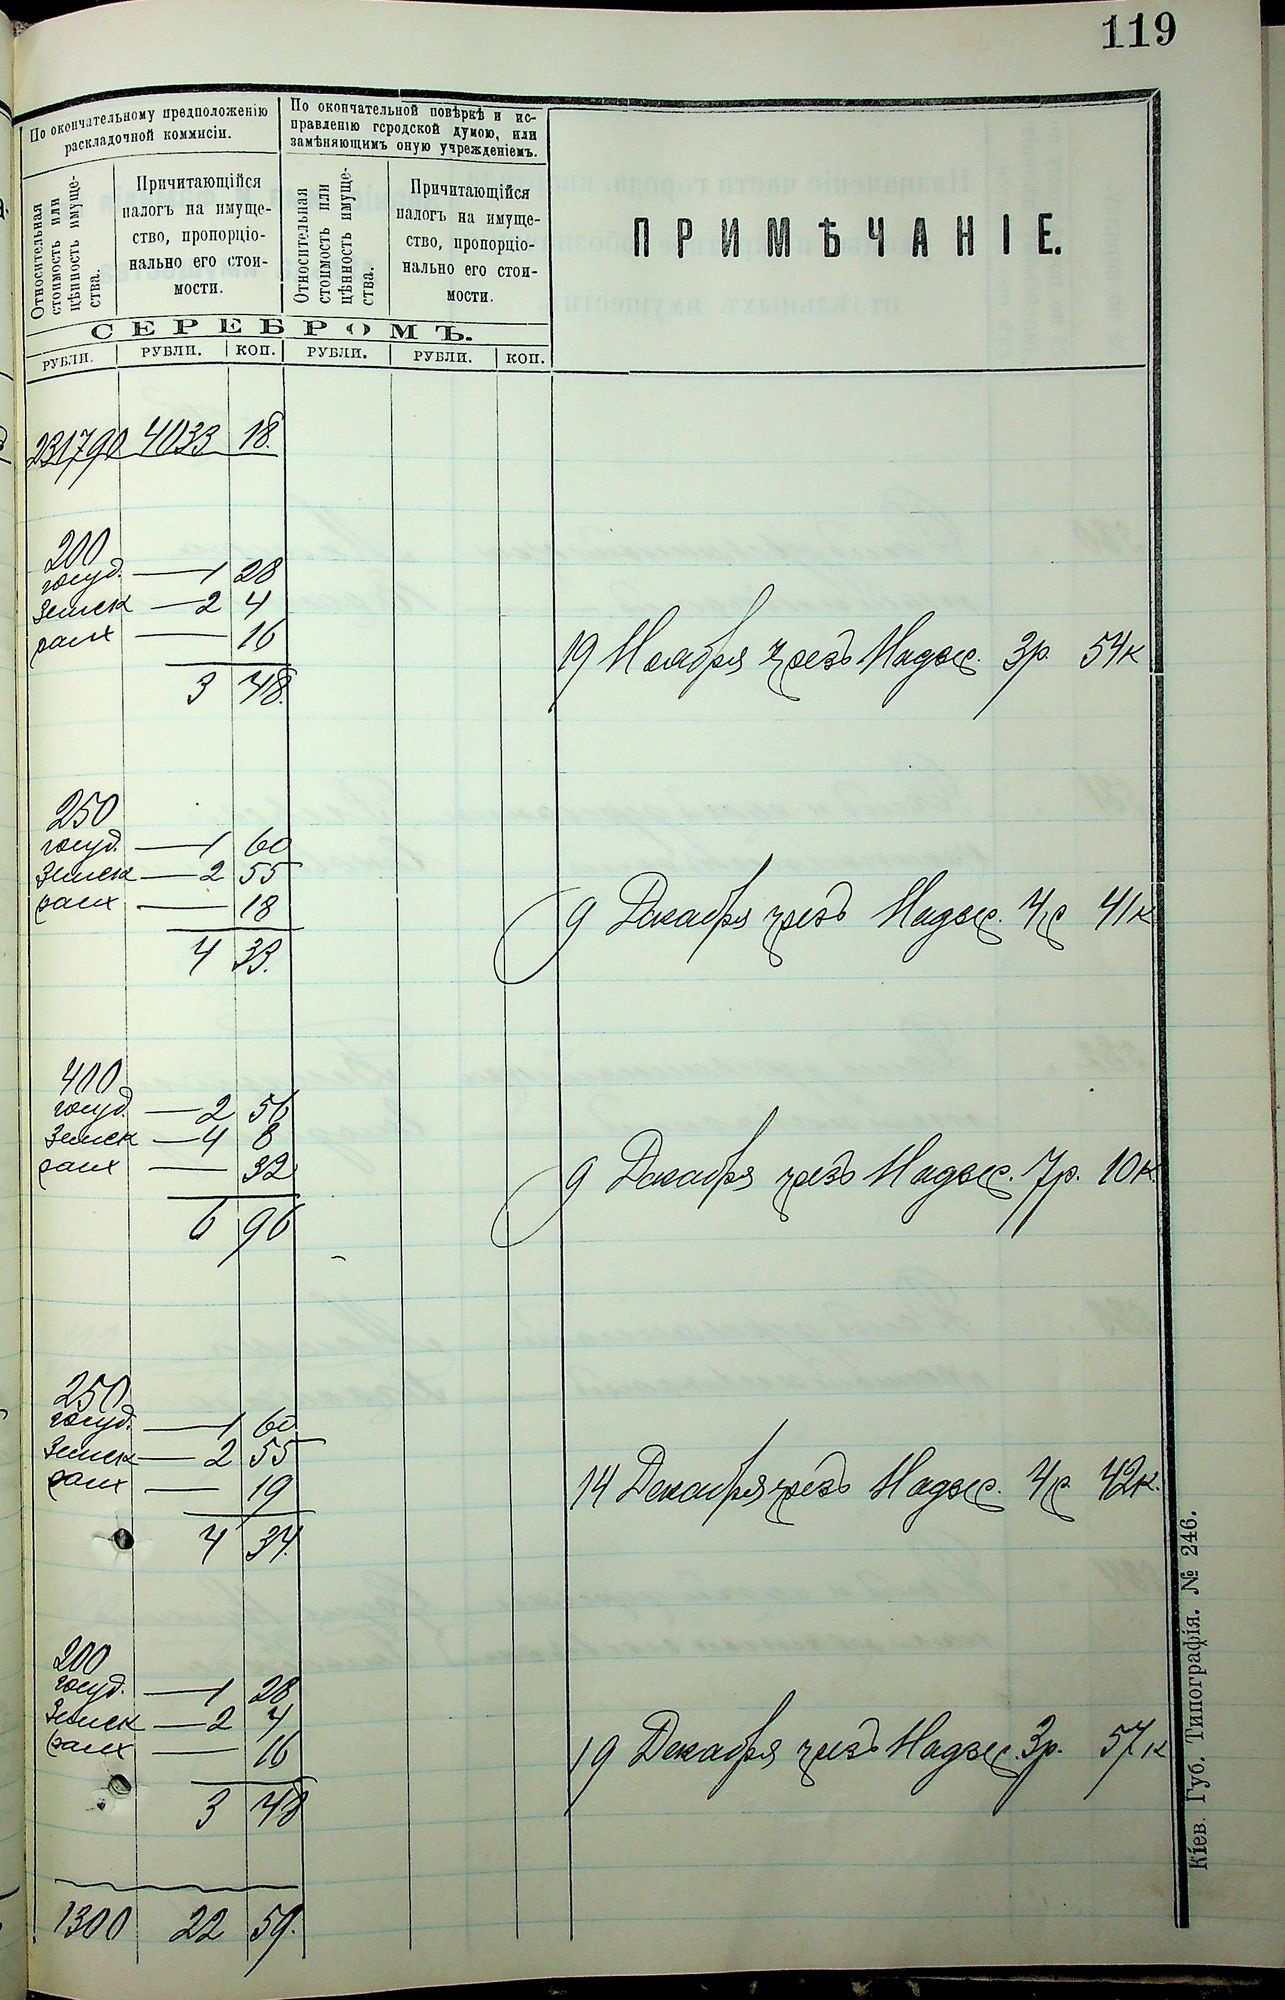 119
По окончательному предположенію
раскладочной коммисіи.
По окончательной повѣркѣ и ис-
правленію городской думою, или
замѣняющимъ оную учрежденіемъ.
Относительная
стоимость или
цѣнность имуще-
ства.
Причитающійся
налогъ на имуще-
ство, пропорціо-
нально его стои-
мости.
Относительная
стоимость или
цѣнность имуще-
ства.
Причитающійся
налогъ на имуще-
ство, пропорціо-
нально его стои-
мости.
ПРИМѢЧАНІЕ.
СЕРЕБРОМЪ.
РУБЛИ. РУБЛИ. КОП. РУБЛИ. РУБЛИ. КОП.
231790 4033 18.
200
госуд. — 1 28
Земск — 2 4
— 16
3 48.
19 Ноября чрезъ Надзс. 3р. 54к
250
госуд. — 1 60
Земск — 2 55
— 18
4 33.
9 Декабря чрезъ Надзс. 4р 41к
400
госуд. — 2 56
Земск — 4 8
— 32
6 96
9 Декабря чрезъ Надзс. 7р. 10к.
250
госуд. — 1 60
Земск — 2 55
— 19
4 34.
14 Декабря чрезъ Надзс. 4р 42к.
200
госуд. — 1 28
Земск — 2 4
— 16
3 48
19 Декабря чрезъ Надзс. 3р. 57к
1300 22 59.
Кіев. Губ. Типографія. № 246.